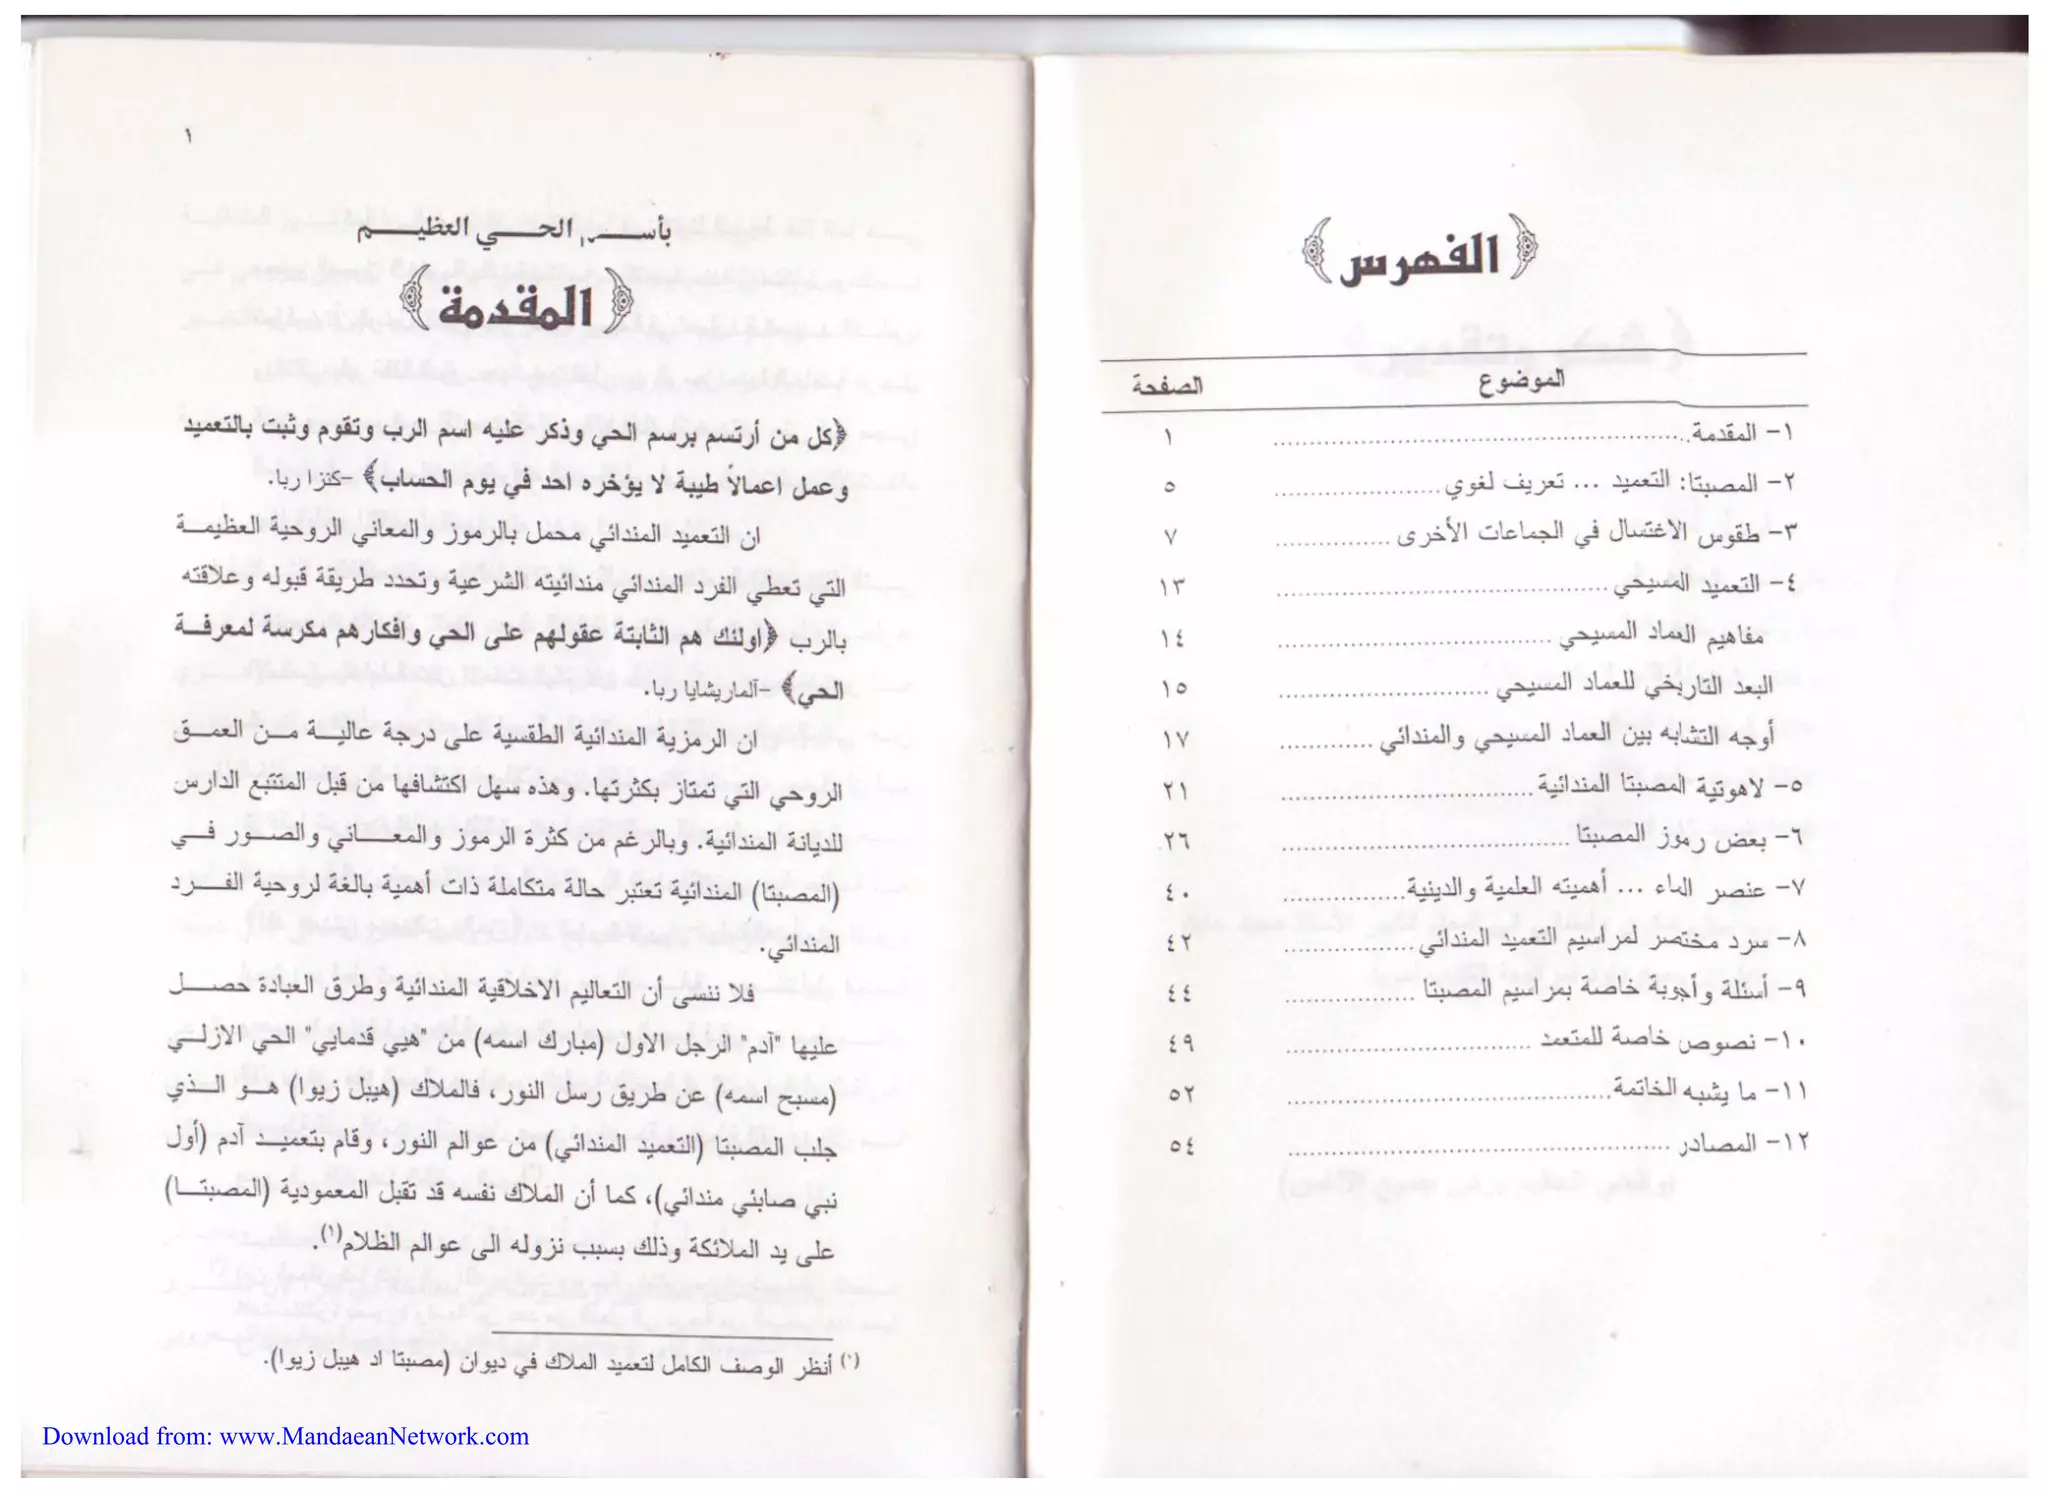 ﴿ الفهرس ﴾
الموضوع الصفحة
١- المقدمة ........ ١
٢- المصبتا: التعميد ... تعريف لغوي ........ ٥
٣- طقوس الأغتسال في الجماعات الأخرى ........ ٧
٤- التعميد المسيحي ........ ١٣
مفاهيم العماد المسيحي ........ ١٤
البعد التاريخي للعماد المسيحي ........ ١٥
أوجه التشابه بين العماد المسيحي والمندائي ........ ١٧
٥- لاهوتية المصبتا المندائية ........ ٢١
٦- بعض رموز المصبتا ........ ٢٦
٧- عنصر الماء ... أهميته العلمية والدينية ........ ٤٠
٨- سرد مختصر لمراسيم التعميد المندائي ........ ٤٢
٩- أسئلة وأجوبة خاصة بمراسيم المصبتا ........ ٤٤
١٠- نصوص خاصة للمتعمد ........ ٤٩
١١- ما يشبه الخاتمة ........ ٥٢
١٢- المصادر ........ ٥٤
١
بأسم الحي العظيم
﴿ المقدمة ﴾
﴿كل من أرتسم برسم الحي وذكر عليه اسم الرب وتقوم وثبت بالتعميد
وعمل اعمالاً طيبة لا يؤخره احد في يوم الحساب﴾ -كنزا ربا.
ان التعميد المندائي محمل بالرموز والمعاني الروحية العظيمة
التي تعطي الفرد المندائي مندائيته الشرعية وتحدد طريقة قبوله وعلاقته
بالرب ﴿اولئك هم الثابتة عقولهم على الحي وافكارهم مكرسة لمعرفة
الحي﴾ -ألماريشايا ربا.
ان الرمزية المندائية الطقسية على درجة عالية من العمق
الروحي التي تمتاز بكثرتها. وهذه سهل اكتشافها من قبل المتتبع الدارس
للديانة المندائية. وبالرغم من كثرة الرموز والمعاني والصور في
(المصبتا) المندائية تعتبر حالة متكاملة ذات أهمية بالغة لروحية الفرد
المندائي.
فلا ننسى أن التعاليم الأخلاقية المندائية وطرق العبادة حصل
عليها "آدم" الرجل الاول (مبارك اسمه) من "هيي قدمايي" الحي الازلي
(مسبح اسمه) عن طريق رسل النور، فالملاك (هيبل زيوا) هو الذي
جلب المصبتا (التعميد المندائي) من عوالم النور، وقام بتعميد آدم (أول
نبي صابئي مندائي)، كما أن الملاك نفسه قد تقبل المعمودية (المصبتا)
على يد الملائكة وذلك بسبب نزوله الى عوالم الظلام(١).
(١) أنظر الوصف الكامل لتعميد الملاك في ديوان (مصبتا اد هيبل زيوا).
Download from: www.MandaeanNetwork.com